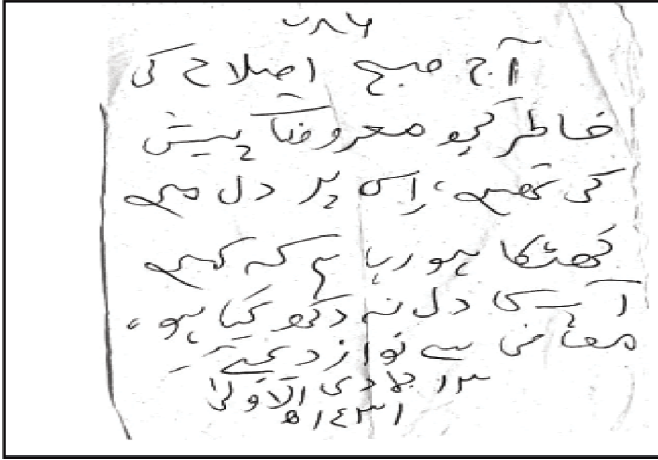 ۷۸۶
آج صبح اصلاح کی
خاطر کچھ معروضات پیش
کی تھیں، اس پر دل میں
کھٹکا ہو رہا ہے کہ کہیں
آپ کا دل نہ دکھ گیا ہو،
معافی سے نواز دیجئے۔
۱۳ جمادی الاولیٰ
۱۴۳۱ھ